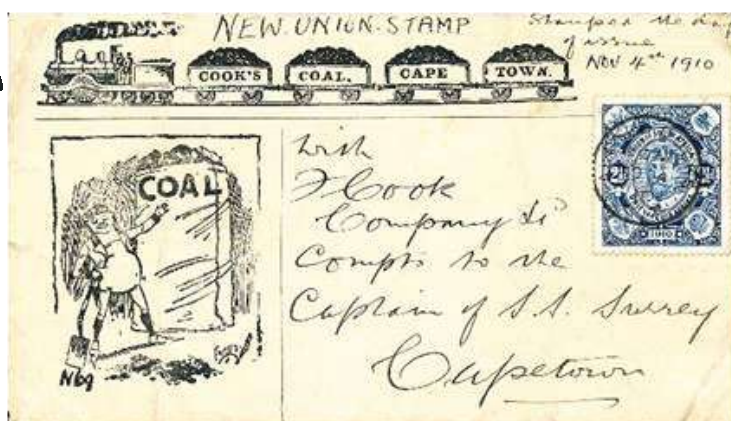 NEW.UNION.STAMP
Stamped the day
of issue
NOV 4th 1910
COOK'S COAL. CAPE TOWN.
COAL
With
Cook
Company
Compts to the
Captain of S.S. Surrey
Capetown
2½ 2½
1910